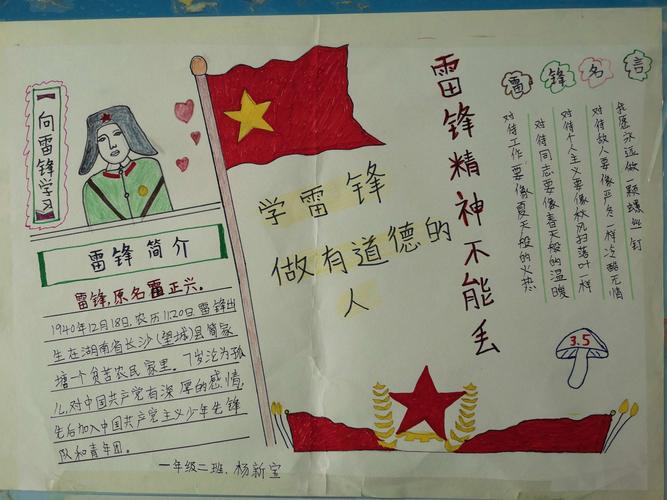 向雷锋学习
雷锋简介
雷锋,原名雷正兴。
1940年12月18日,农历11.20日雷锋出
生在湖南省长沙(望城)县简家
塘一个贫苦农民家里。7岁沦为孤
儿,对中国共产党有深厚的感情,
先后加入中国共产党主义少年先锋
队和青年团。
一年级二班.杨新宝
学雷锋
做有道德的
人
雷锋精神不能丢
雷锋名言
我愿永远做一颗螺丝钉
对待敌人要像严冬一样冷酷无情
对待个人主义要像秋风扫落叶一样
对待同志要像春天般的温暖
对待工作要像夏天般的火热
3.5